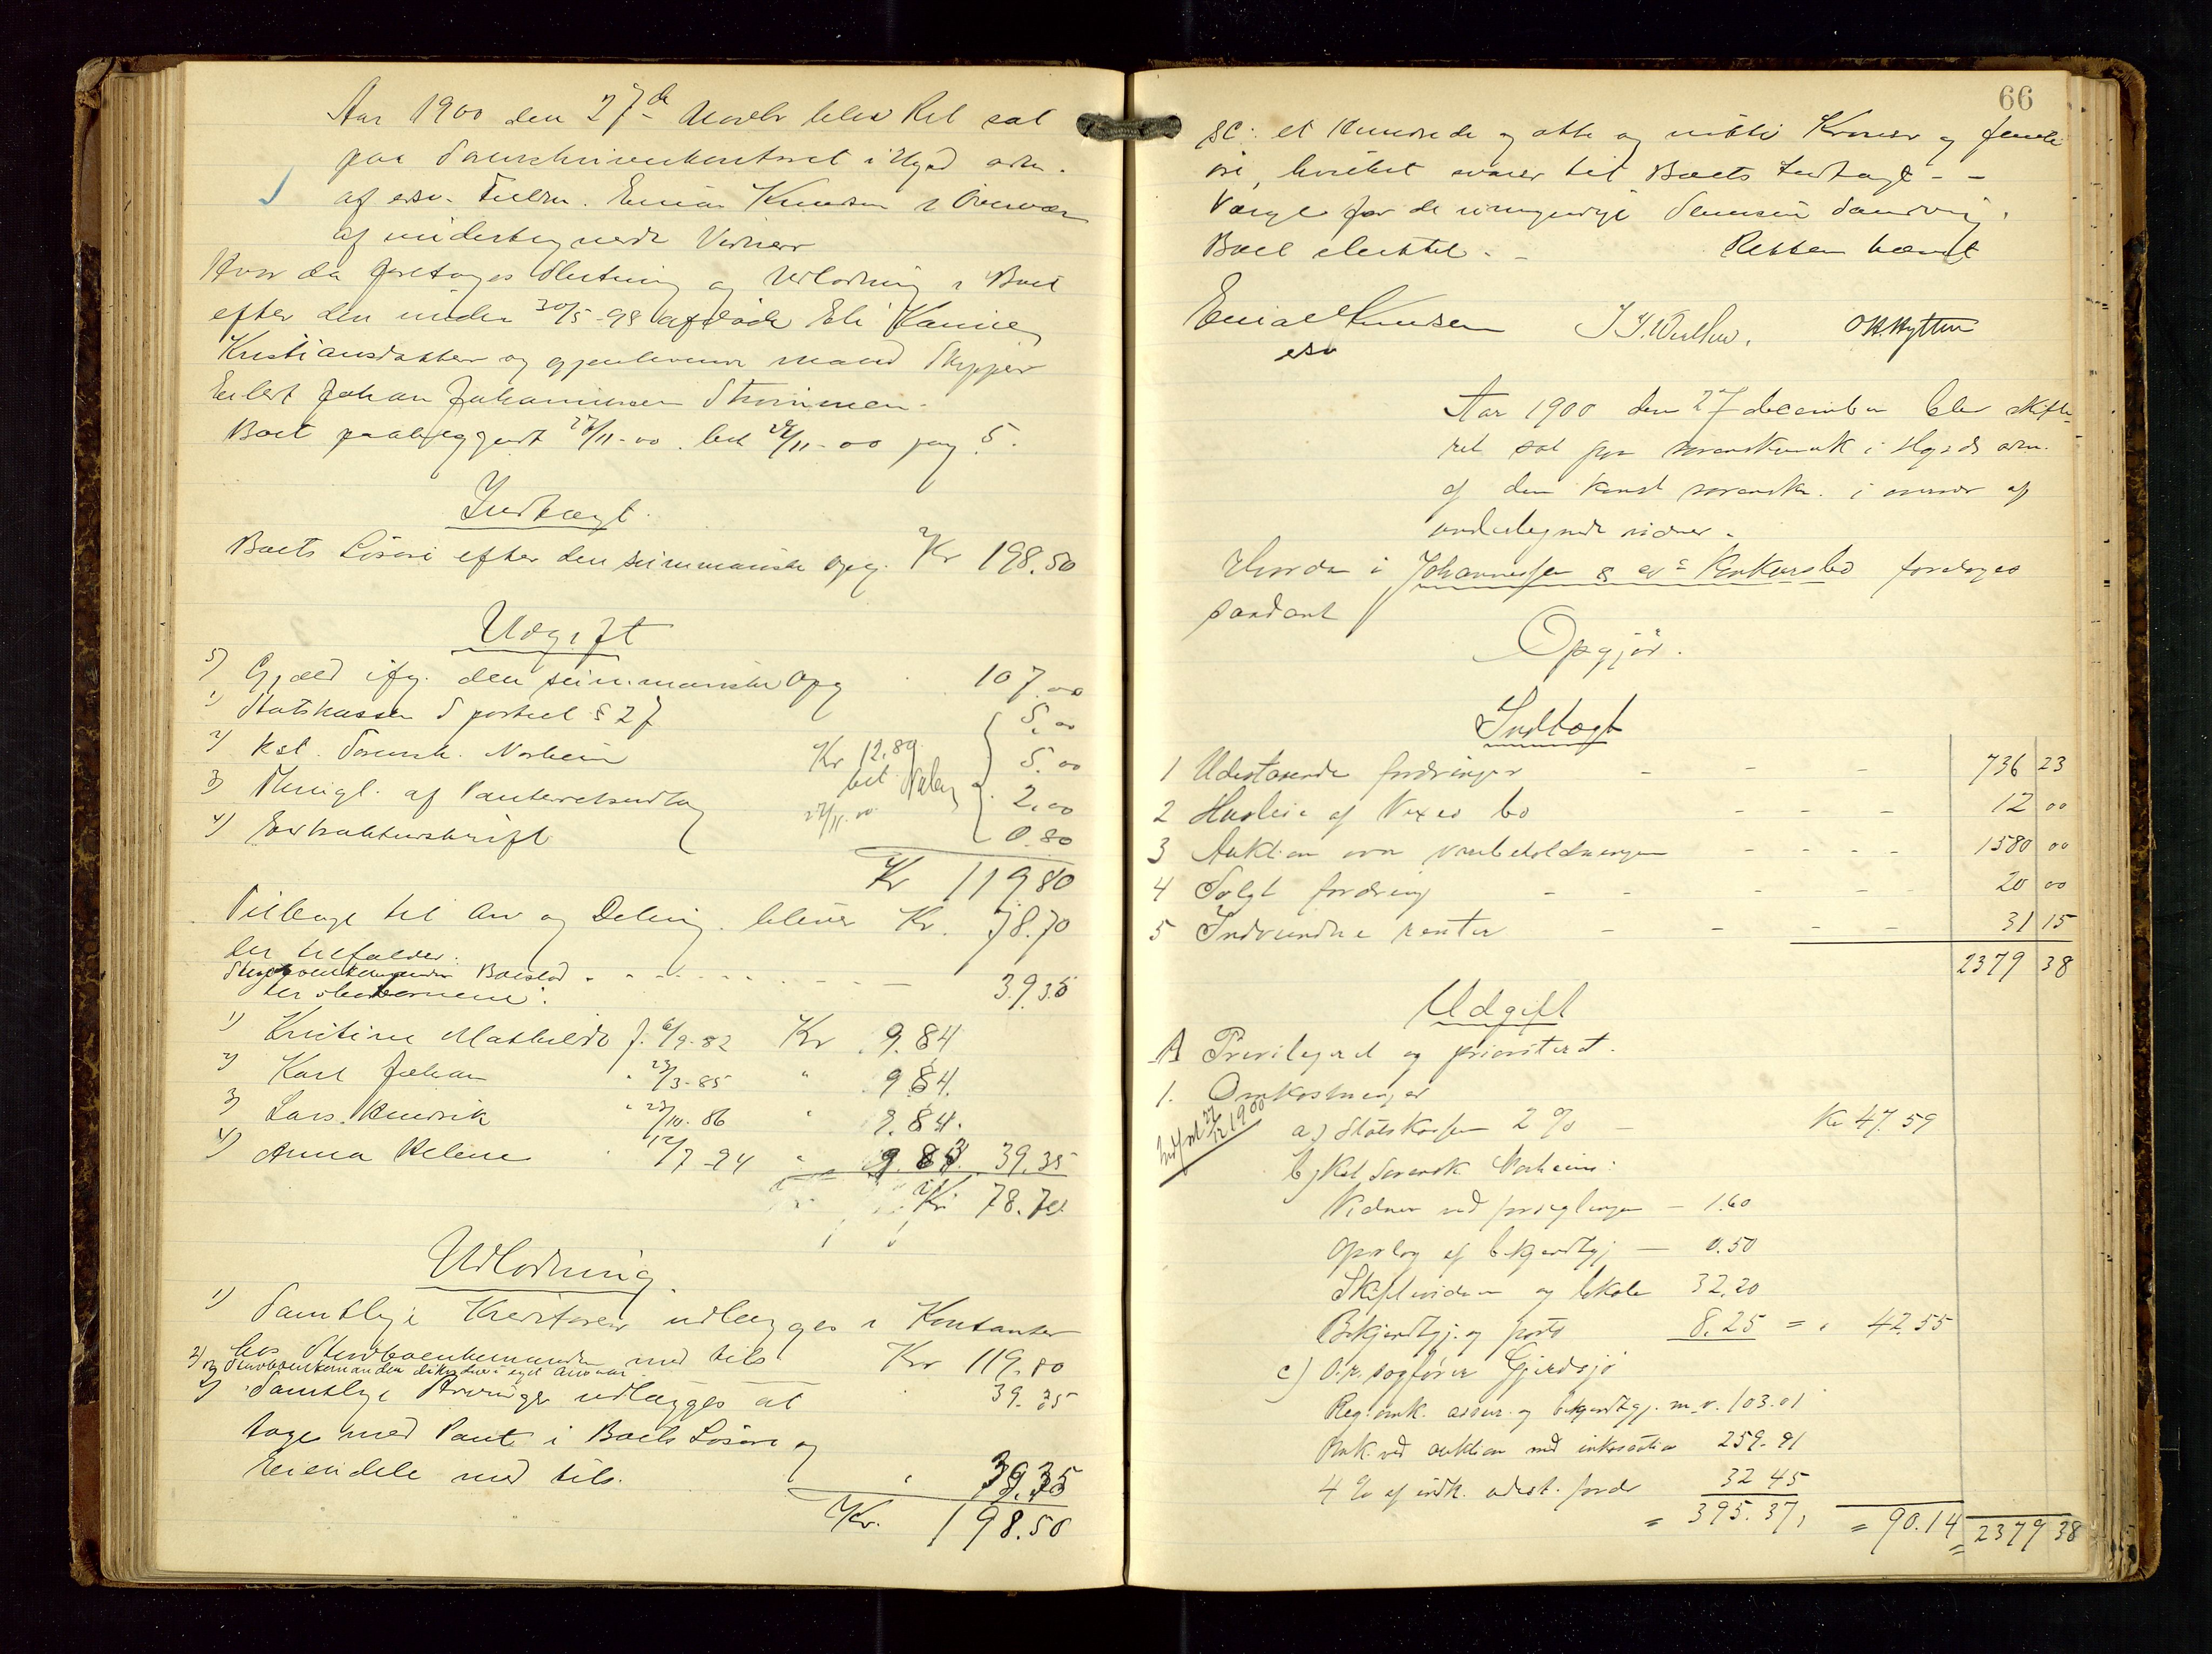 Aar 1900 den 27de Novbr blev Ret sat
paa Sorenskriverkontoret i Hgsd adm.
af edsv. Fuldm. Einar Knudsen i Overvær
af undertegnede Vidner
Hvor da foretoges Slutning og Udlodning i Boet
efter den under 30/5-98 afdøde Eli Karine
Kristiansdatter og gjenlevende mand Skipper
Eilert Johan Johannesen Strømmen.
Boet paabegyndt 27/11-00. bet 27/11-00 pag 5.
Indtægt.
Boets Løsøre efter den summariske Opg. Kr 198.50
Udgift
5) Gjæld ifg. den summariske Opg 107.00
1) Statskassen Sportel § 27 5.00
2) Kst. Sorensk. Norheim Kr 12.80 5.00
3) Thingl. af Panteretsudlæg bet 2.00
4) Extraktudskrift 27/11-00 0.80
Kr 119.80
Tilbage til Arv og Deling bliver Kr. 78.70
der tilfalder:
Boslod 39.35
1) Kristine Mathilde f. 6/9-82 Kr 9.84
2) Karl Johan " 23/3-85 " 9.84.
3) Lars Henrik " 23/10-86 " 9.84.
4) Anna Helene " 12/7-94 " 9.83 39.35
Kr. 78.70
Udlodning.
1) Samtlige Kreditorer udlægges i Kontanter
hos Stervboenkemanden med tils. Kr 119.80
2) og Stervboenkemanden ligesaa i eget Ansvar
3) Samtlige Arvinger udlægges at 39.35
tage med Pant i Boets Løsøre og
Eiendele med tils. " 39.35
Kr. 198.50
66
sc: et Hundrede og otte og nitti Kroner og femti
øre, hvilket svarer til Boets Indtægt - -
Værge for de umyndige Samson Sandvig.
Boet sluttet. - Retten hævet
Einar Knudsen
edsv
O H Hytten
Aar 1900 den 27 december blev skifte-
ret sat paa sorenskr.ktr i Hgsd adm.
af den konst sorenskr. i overvær af
undertegnede vidner.
Hvorda i Johannessen & Co's Konkursbo foretoges
saadant
Opgjør.
Indtægt
1 Udestaaende fordringer - - - 736 23
2 Husleie af Vexes bo - - - 12 00
3 Auktion over varebeholdningen - - - - 1580 00
4 Solgt fordring - - - - - 20 00
5 Indvundne renter - - - - 31 15
2379 38
Udgift
A Privilegeret og prioriteret.
1. Omkostninger
27/12 1900
a) Statskassen 2 % - Kr 47.59
b) Kst. Sorensk. Norheim:
Vidner ved forseglingen - 1.60
Opslag af bekjendtgj - 0.50
Skiftevidner og lokale 32.20
Bekjendtgj. og porto 8.25 = " 42.55
c) O.r. sagfører Gjerdsjø
Reg. omk. assur. og bekjendtgj. m. v. 103.01
Omk. ved auktion med inkassation 259.91
4 % af indk. udest. fordr 32 45
= 395.37, = 90.14 2379 38